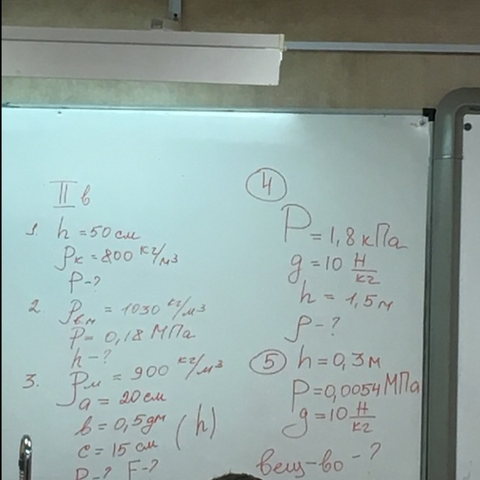 II в
1. h = 50 см
ρк = 800 кг/м³
P - ?
2 ρв.м = 1030 кг/м³
P = 0,18 МПа
h - ?
3. ρм = 900 кг/м³
a = 20 см
b = 0,5 дм (h)
c = 15 см
P - ? F - ?
4
P = 1,8 кПа
g = 10 Н/кг
h = 1,5 м
ρ - ?
5 h = 0,3 м
P = 0,0054 МПа
g = 10 Н/кг
вещ-во - ?